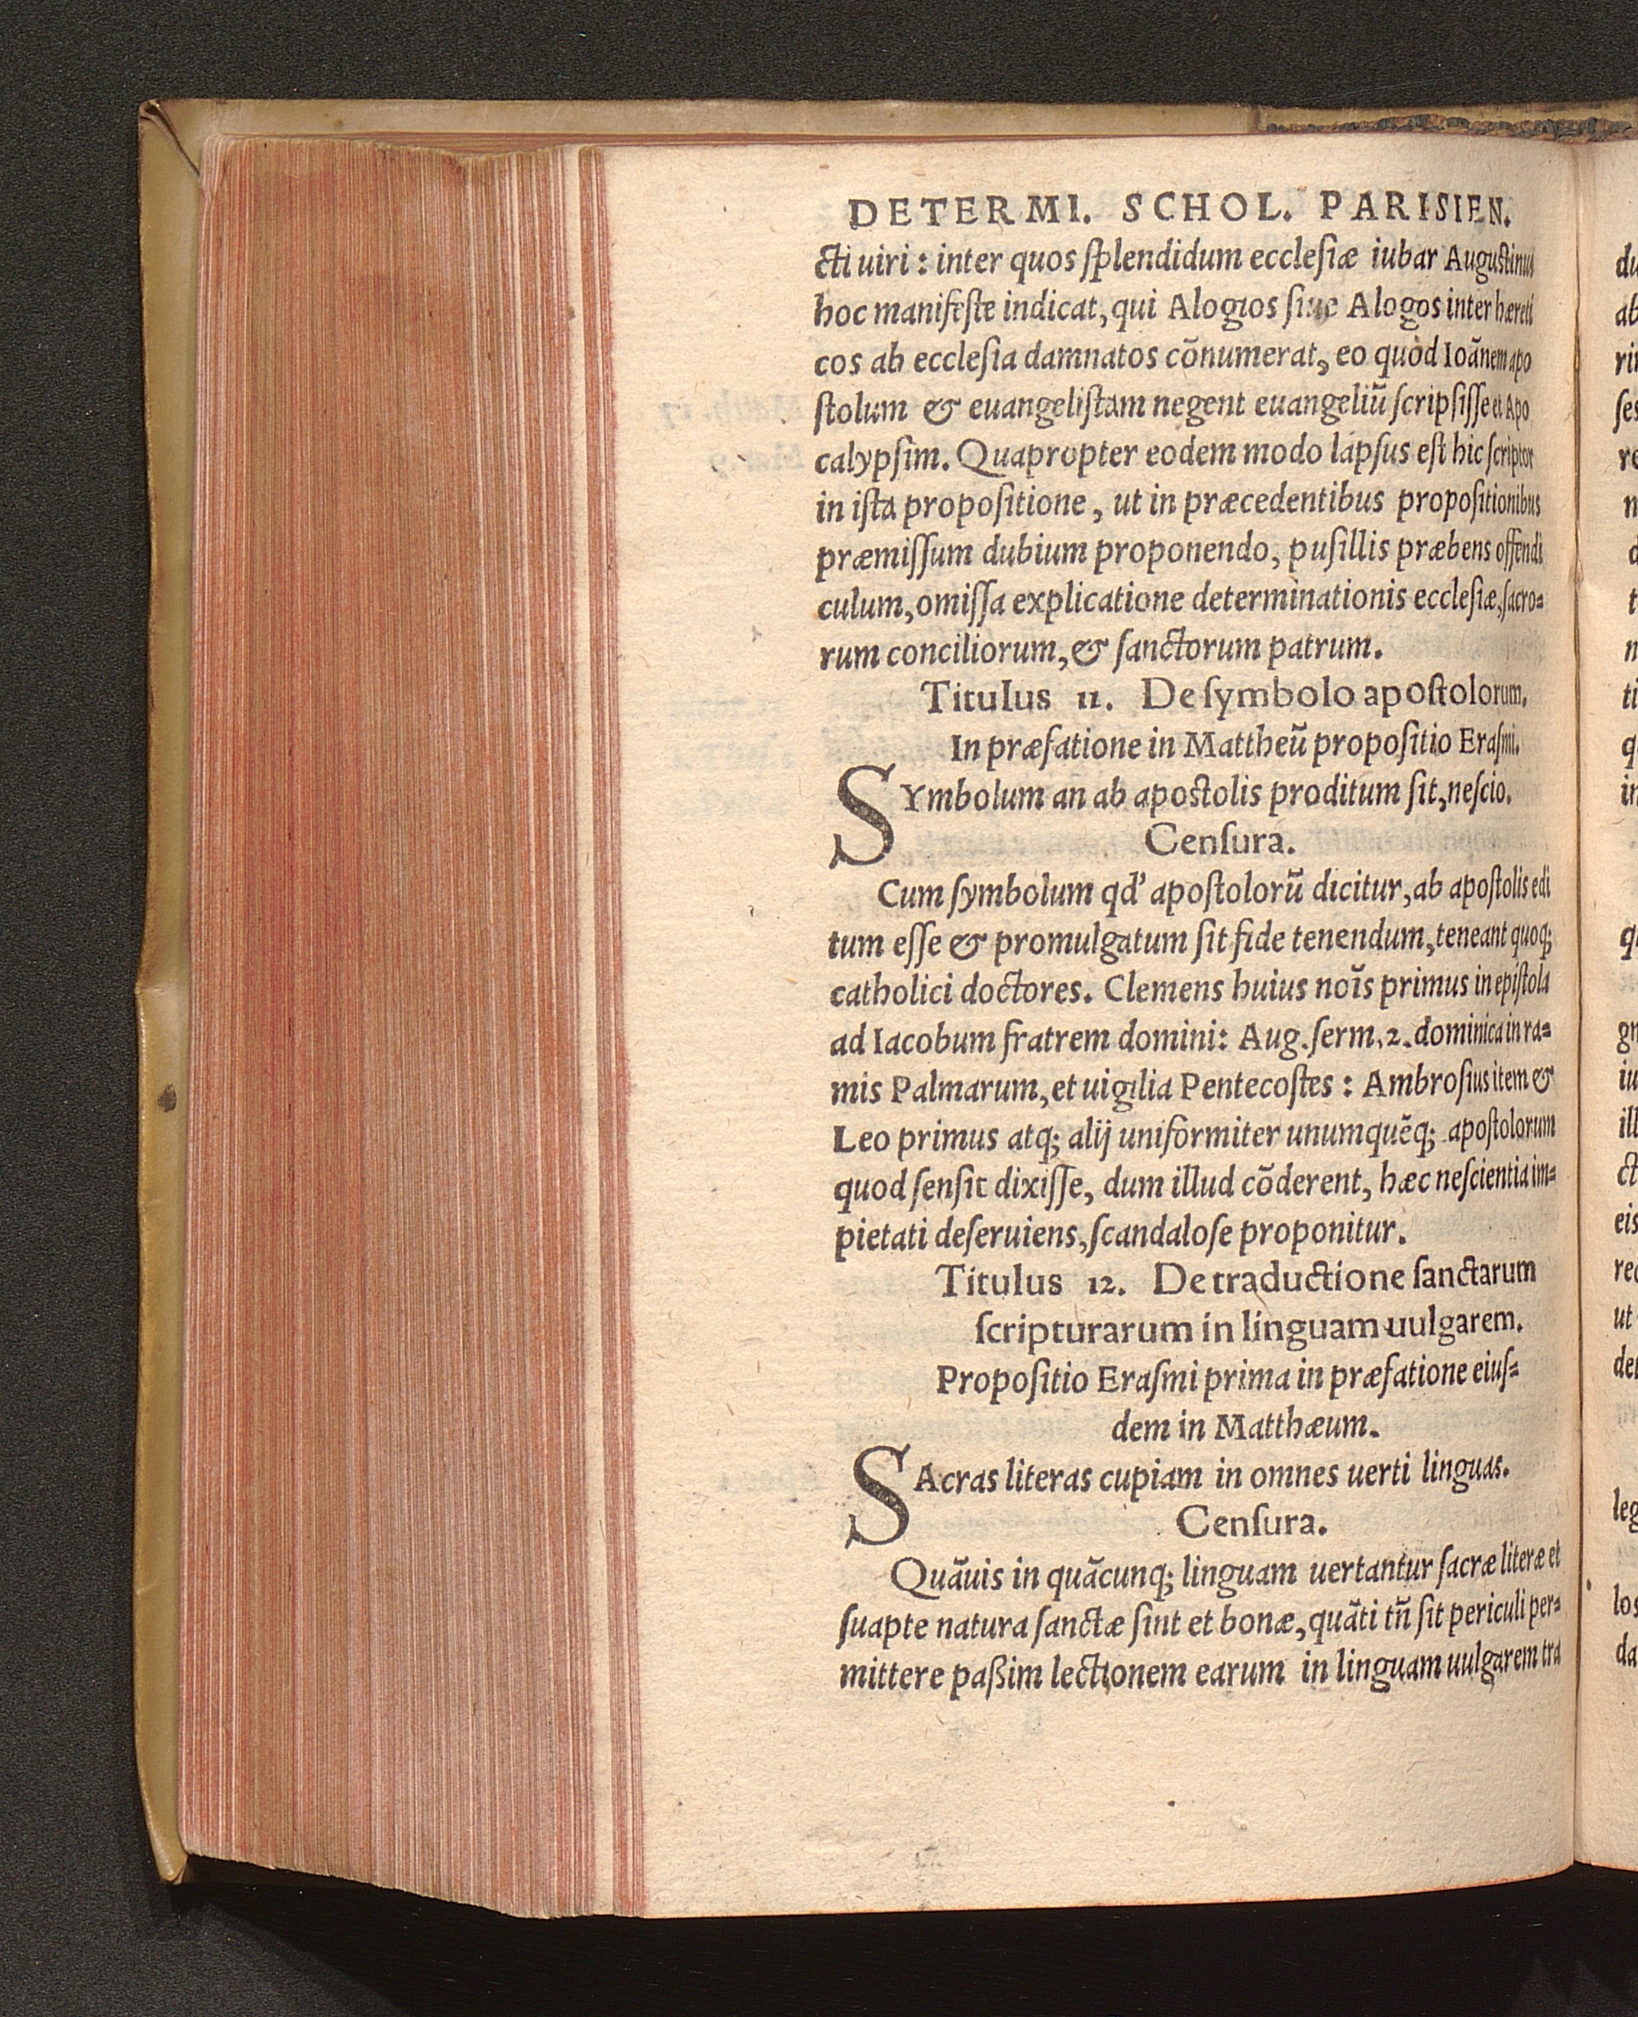 DETERMI. SCHOL. PARISIEN.
cti uiri: inter quos ſplendidum eccleſiæ iubar Auguſtinus
hoc manifeſte indicat, qui Alogios ſiue Alogos inter hæreti
cos ab eccleſia damnatos cõnumerat, eo quòd Ioãnem apo
ſtolum & euangeliſtam negent euangeliũ ſcripſiſſe et Apo
calypſim. Quapropter eodem modo lapſus eſt hic ſcriptor
in iſta propoſitione, ut in præcedentibus propoſitionibus
præmiſſum dubium proponendo, puſillis præbens offendi
culum, omiſſa explicatione determinationis eccleſiæ, ſacro⸗
rum conciliorum, & ſanctorum patrum.
Titulus 11. De ſymbolo apoſtolorum.
In præfatione in Mattheũ propoſitio Eraſmi.
SYmbolum an ab apoſtolis proditum ſit, neſcio.
Cenſura.
Cum ſymbolum qd' apoſtolorũ dicitur, ab apoſtolis edi
tum eſſe & promulgatum ſit fide tenendum, teneant quoq;
catholici doctores. Clemens huius noĩs primus in epiſtola
ad Iacobum fratrem domini: Aug. ſerm. 2. dominica in ra⸗
mis Palmarum, et uigilia Pentecoſtes: Ambroſius item &
Leo primus atq; alij uniformiter unumquẽq; apoſtolorum
quod ſenſit dixiſſe, dum illud cõderent, hæc neſcientia im⸗
pietati deſeruiens, ſcandaloſe proponitur.
Titulus 12. De traductione ſanctarum
ſcripturarum in linguam uulgarem.
Propoſitio Eraſmi prima in præfatione eiuſ⸗
dem in Matthæum.
SAcras literas cupiam in omnes uerti linguas.
Cenſura.
Quãuis in quãcunq; linguam uertantur ſacræ literæ et
ſuapte natura ſanctæ ſint et bonæ, quãti tñ ſit periculi per⸗
mittere paßim lectionem earum in linguam uulgarem tra